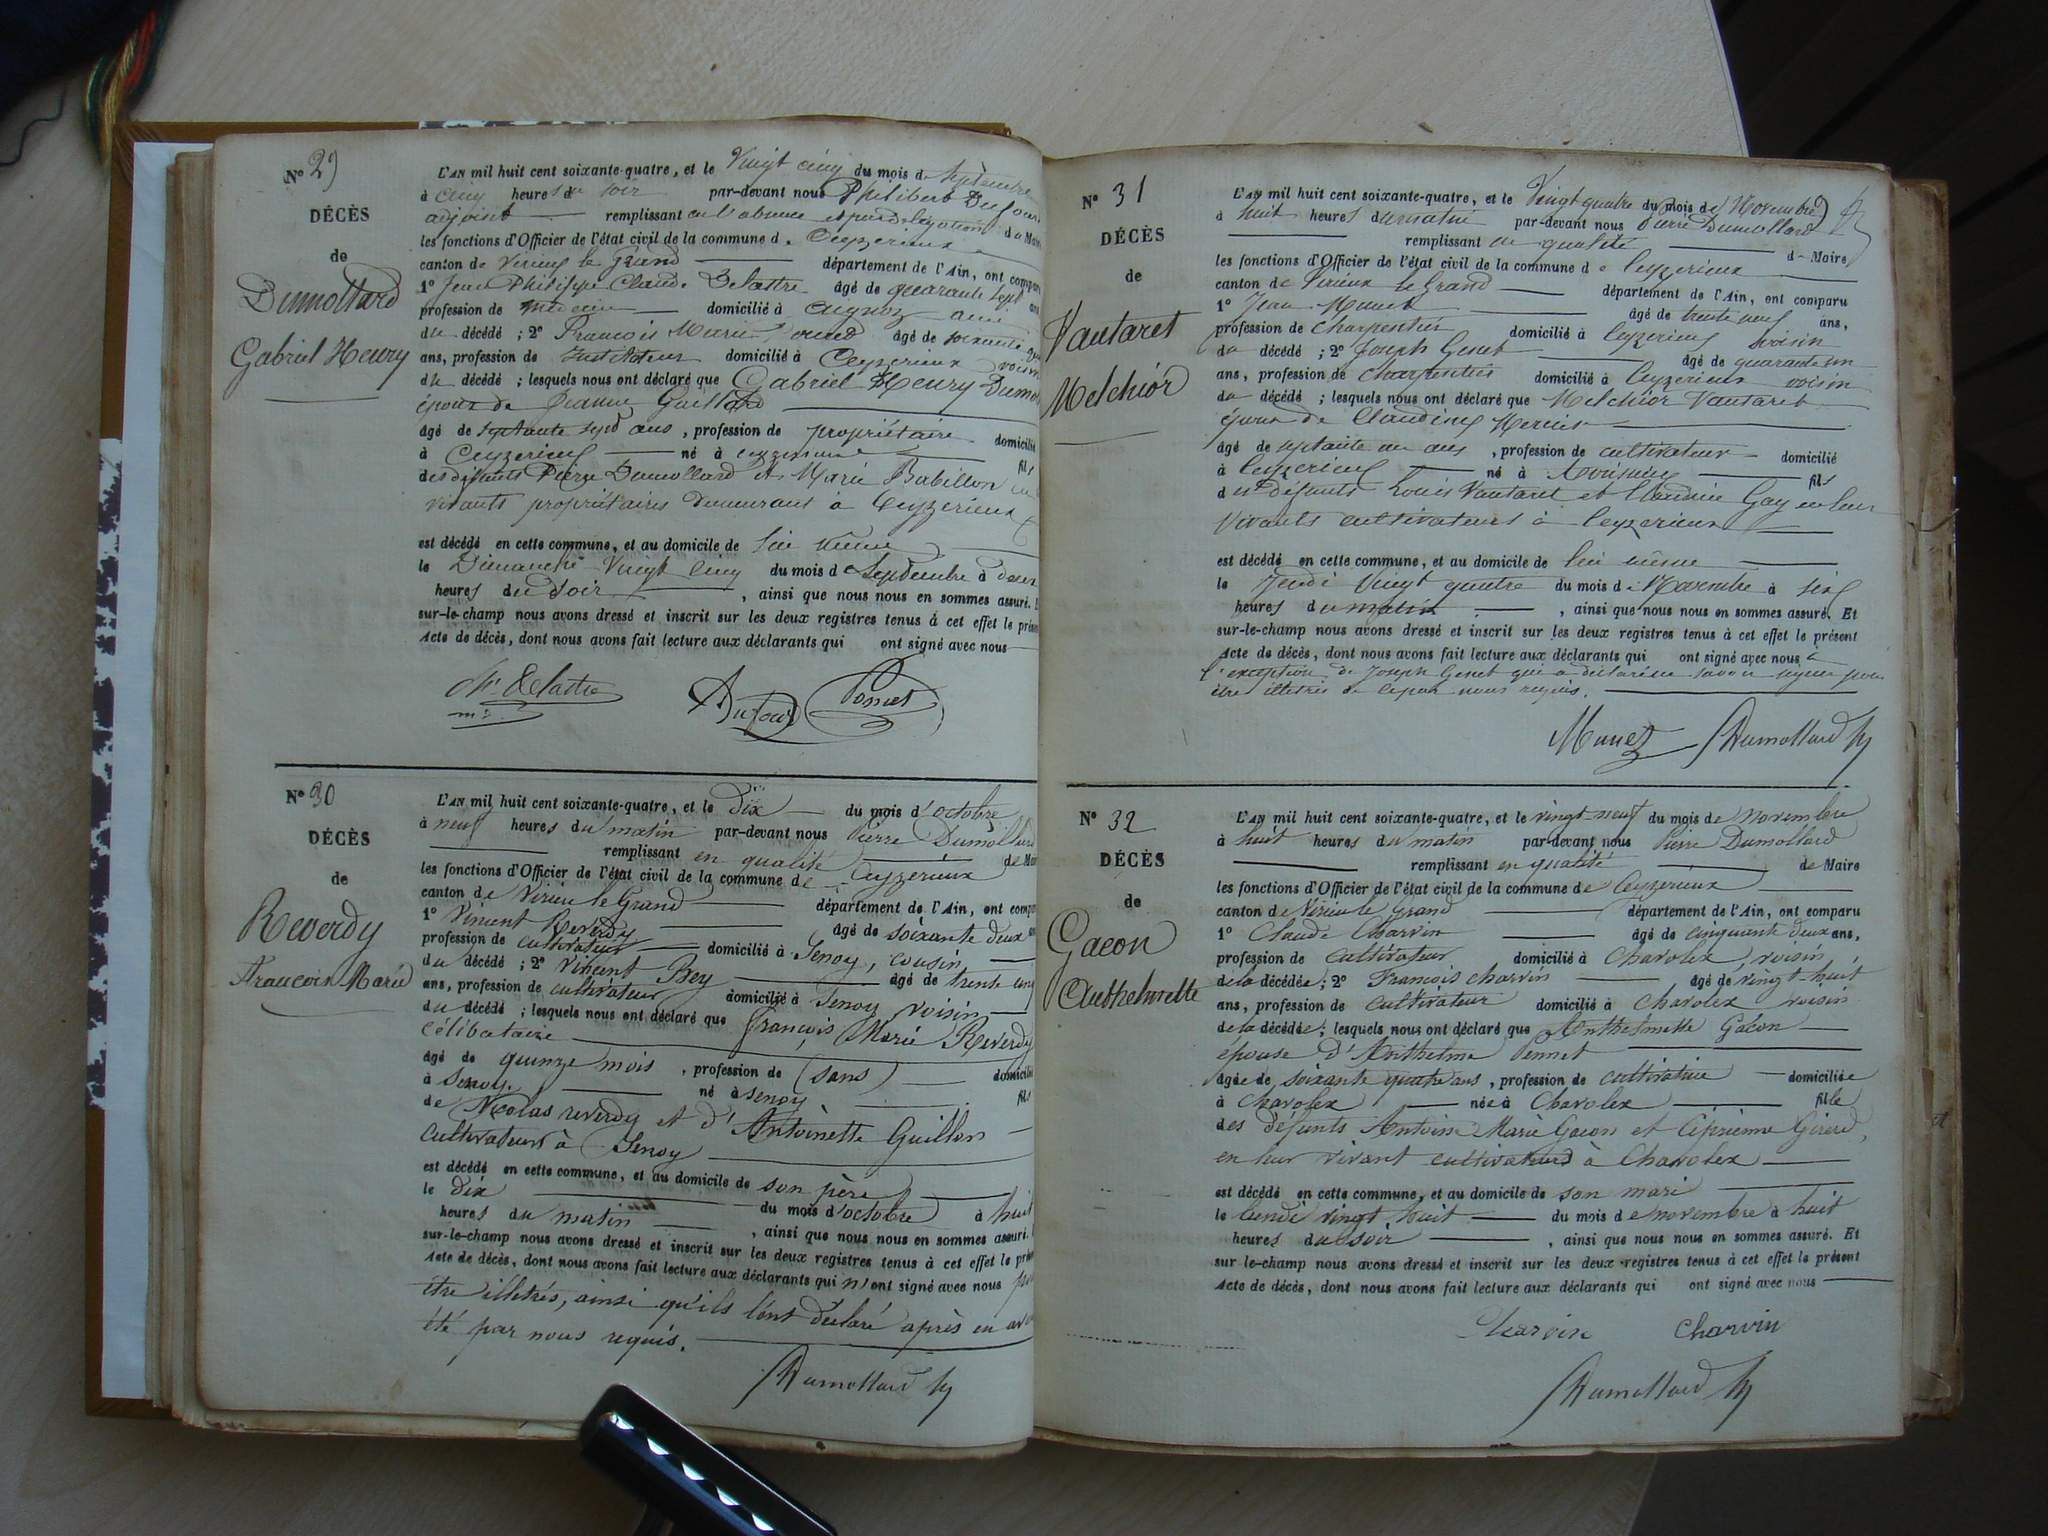 N° 29
DÉCÈS
de
Dumollard
Gabriel Henry
L'AN mil huit cent soixante-quatre, et le Vingt cinq du mois de Septembre
à cinq heures du soir par-devant nous Philibert Dufour
adjoint remplissant en l'absence et par délégation du Maire
les fonctions d'Officier de l'état civil de la commune de Ceyzerieux
canton de Virieu le Grand département de l'Ain, ont comparu
1° Jean Philippe Claude Delastre âgé de quarante sept ans
profession de médecin domicilié à ami
du décédé ; 2° François Marie âgé de soixante
ans, profession de Instituteur domicilié à Ceyzerieux voisin
du décédé ; lesquels nous ont déclaré que Gabriel Henry Dumol
époux de Jeanne Gaillard
âgé de septante sept ans, profession de propriétaire domicilié
à Ceyzerieux né à Ceyzerieux fils
des défunts Pierre Dumollard et Marie Babillon
vivants propriétaires demeurant à Ceyzerieux
est décédé en cette commune, et au domicile de lui même
le Dimanche Vingt cinq du mois de Septembre à deux
heures du soir, ainsi que nous nous en sommes assuré.
sur-le-champ nous avons dressé et inscrit sur les deux registres tenus à cet effet le présen
Acte de décès, dont nous avons fait lecture aux déclarants qui ont signé avec nous
Delastre
Dufour
Pomet
N° 30
DÉCÈS
de
Reverdy
François Marie
L'AN mil huit cent soixante-quatre, et le dix du mois d'octobre
à neuf heures du matin par-devant nous Pierre Dumollard
remplissant en qualité de Mair
les fonctions d'Officier de l'état civil de la commune de Ceyzerieux
canton de Virieu le Grand département de l'Ain, ont compa
1° Vincent Reverdy âgé de soixante deux
profession de cultivateur domicilié à Senoy, cousin
du décédé ; 2° Vincent Bey âgé de trente cinq
ans, profession de cultivateur domicilié à Senoy voisin
du décédé ; lesquels nous ont déclaré que François Marie Reverdy
célibataire
âgé de quinze mois, profession de (sans) domicilié
à Senoy né à Senoy fils
de Nicolas reverdy et d'Antoinette Guillon
cultivateurs à Senoy
est décédé en cette commune, et au domicile de son père
le dix du mois d'octobre à huit
heures du matin, ainsi que nous nous en sommes assuré.
sur-le-champ nous avons dressé et inscrit sur les deux registres tenus à cet effet le prése
Acte de décès, dont nous avons fait lecture aux déclarants qui n'ont signé avec nous pou
être illetrés, ainsi qu'ils l'ont déclaré après en avoir
été par nous requis.
Dumollard
N° 31
DÉCÈS
de
Vautaret
Melchior
L'AN mil huit cent soixante-quatre, et le Vingt quatre du mois de Novembre
à huit heures du matin par-devant nous Pierre Dumollard
remplissant en qualité de Maire
les fonctions d'Officier de l'état civil de la commune de Ceyzerieux
canton de Virieux le Grand département de l'Ain, ont comparu
1° Jean Munet âgé de trente neuf ans,
profession de charpentier domicilié à Ceyzerieux voisin
du décédé ; 2° Joseph Genet âgé de quarante un
ans, profession de charpentier domicilié à Ceyzerieux voisin
du décédé ; lesquels nous ont déclaré que Melchior Vautaret
époux de Claudine Mercier
âgé de septante un ans, profession de cultivateur domicilié
à Ceyzerieux né à fils
des défunts Louis Vautaret et Claudine Gay en leur
vivants cultivateurs à Ceyzerieux
est décédé en cette commune, et au domicile de lui même
le Jeudi Vingt quatre du mois de Novembre à six
heures du matin, ainsi que nous nous en sommes assuré. Et
sur-le-champ nous avons dressé et inscrit sur les deux registres tenus à cet effet le présent
Acte de décès, dont nous avons fait lecture aux déclarants qui ont signé avec nous à
l'exception de Joseph Genet qui a déclaré ne savoir signer pour
être illetrés de ce par nous requis.
Munet Dumollard
N° 32
DÉCÈS
de
Gacon
Anthelmette
L'AN mil huit cent soixante-quatre, et le vingt-neuf du mois de novembre
à huit heures du matin par-devant nous Pierre Dumollard
remplissant en qualité de Maire
les fonctions d'Officier de l'état civil de la commune de Ceyzerieux
canton de Virieu le Grand département de l'Ain, ont comparu
1° Claude Charvin âgé de cinquante deux ans,
profession de cultivateur domicilié à Chavolex, voisin
de la décédée ; 2° François Charvin âgé de vingt-huit
ans, profession de cultivateur domicilié à Chavolex voisin
de la décédée ; lesquels nous ont déclaré que Anthelmette Gacon
épouse d'Anthelme Pennet
âgée de soixante quatre ans, profession de cultivatrice domiciliée
à Chavolex née à Chavolex fille
des défunts Antoine Marie Gacon et Ciprienne Girerd,
en leur vivant cultivateurs à Chavolex
est décédé en cette commune, et au domicile de son mari
le lundi vingt huit du mois de novembre à huit
heures du soir, ainsi que nous nous en sommes assuré. Et
sur-le-champ nous avons dressé et inscrit sur les deux registres tenus à cet effet le présent
Acte de décès, dont nous avons fait lecture aux déclarants qui ont signé avec nous
Charvin Charvin
Dumollard